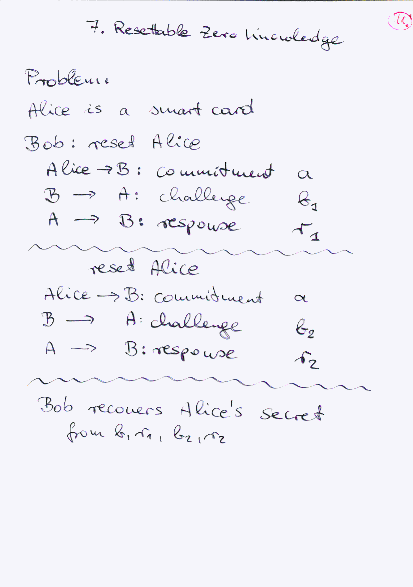 7. Resettable Zero Knowledge
Problem:
Alice is a smart card
Bob: reset Alice
Alice → B: commitment a
B → A: challenge b1
A → B: response r1
reset Alice
Alice → B: commitment a
B → A: challenge b2
A → B: response r2
Bob recovers Alice's secret
from b, r1, b2, r2